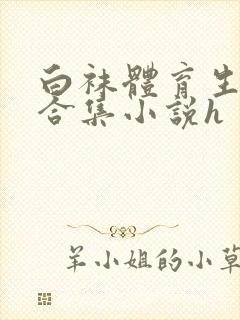 白袜體育生
合集小説h
羊小姐的小草